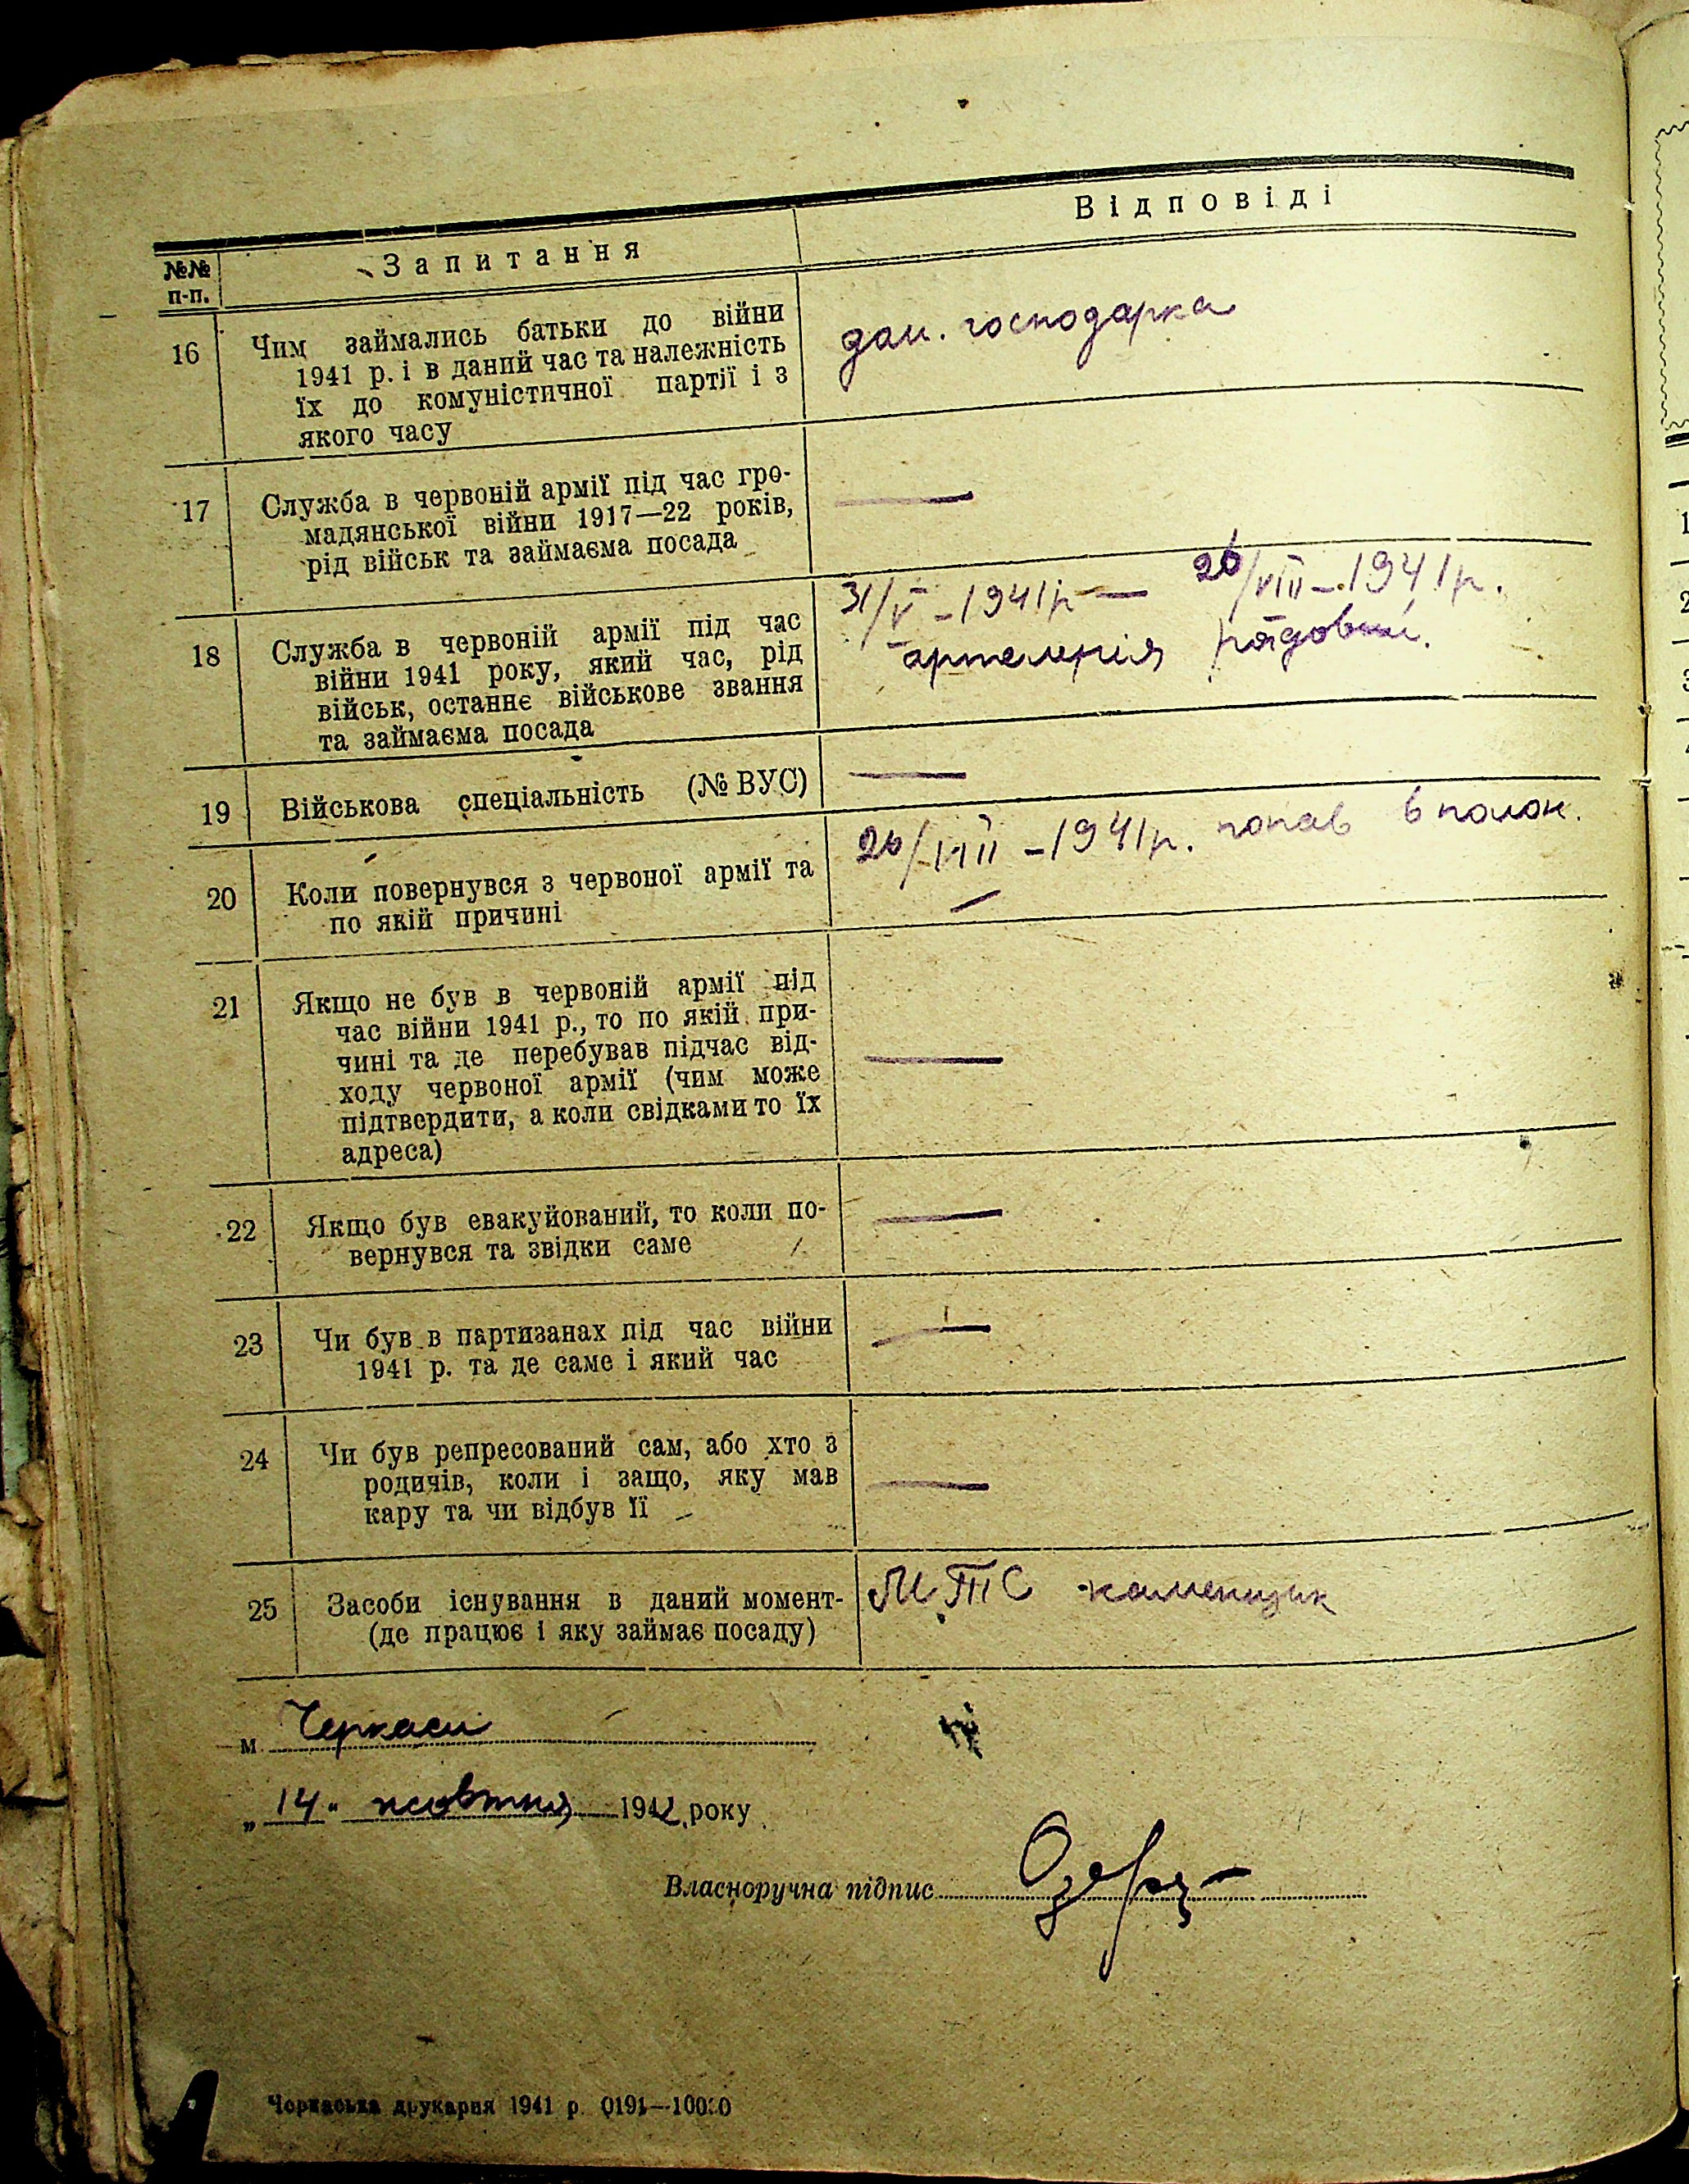 №№ п-п.
Запитання
Відповіді
16
Чим займались батьки до війни
1941 р. і в даний час та належність
їх до комуністичної партії і з
якого часу
дом. господарка
17
Служба в червоній армії під час гро-
мадянської війни 1917—22 років,
рід військ та займаєма посада
—
18
Служба в червоній армії під час
війни 1941 року, який час, рід
військ, останнє військове звання
та займаєма посада
31/V - 1941р — 26/VIII - 1941р.
артелерія рядовий.
19
Військова спеціальність (№ ВУС)
—
20
Коли повернувся з червоної армії та
по якій причині
26/VIII - 1941р. попав в полон.
—
21
Якщо не був в червоній армії під
час війни 1941 р., то по якій при-
чині та де перебував підчас від-
ходу червоної армії (чим може
підтвердити, а коли свідками то їх
адреса)
—
22
Якщо був евакуйований, то коли по-
вернувся та звідки саме
—
23
Чи був в партизанах під час війни
1941 р. та де саме і який час
—
24
Чи був репресований сам, або хто з
родичів, коли і защо, яку мав
кару та чи відбув її
—
25
Засоби існування в даний момент-
(де працює і яку займає посаду)
МТС каменщик
м. Черкаси
„14" жовтня 1942 року
Власноручна підпис
Черкаська друкарня 1941 р. 0191—10000